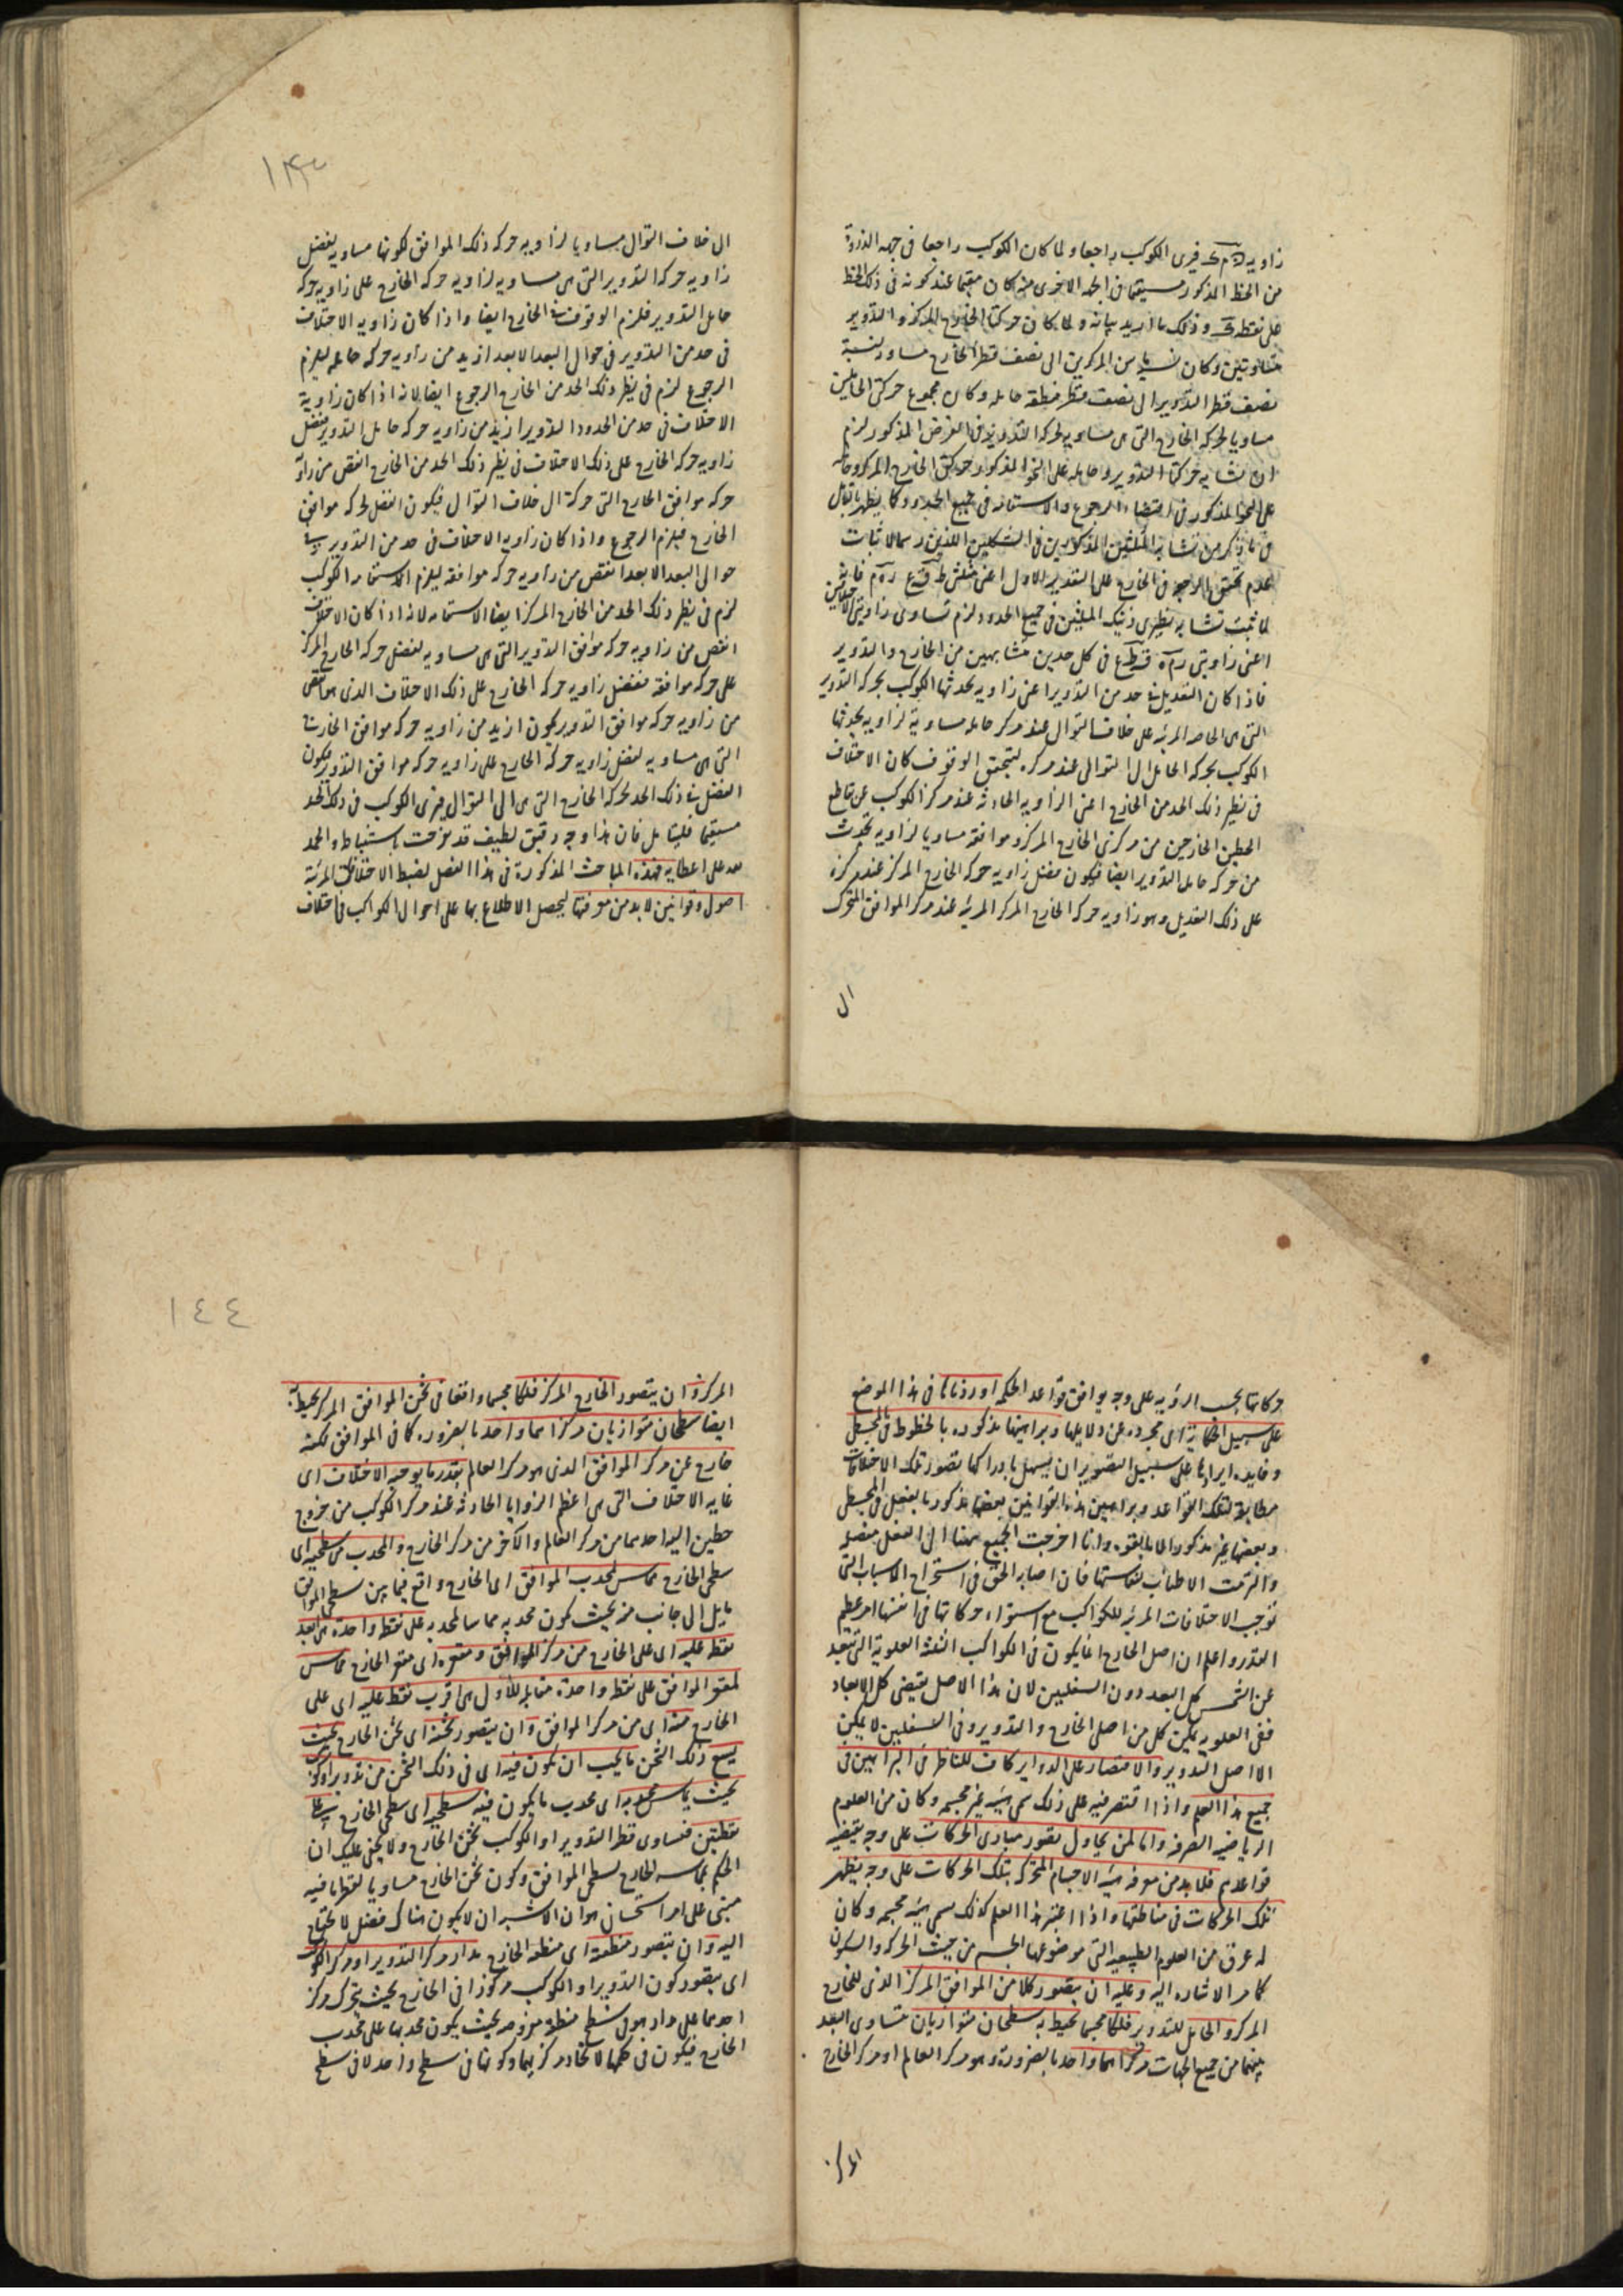 زاويه فيرى الكوكب راجعا ولما كان الكوكب راجعا فى جهه الذروة
من الخط المذكور مستقيما فى الجهه الاخرى منه كان مقيما عند كونه فى ذلك الخط
على نقطه وذلك ما اريد بيانه ولما كان حركتا الخارج المركز والتدوير
متساويتين وكان نسبه ما بين المركزين الى نصف قطر الخارج مساو لنسبة
نصف قطر التدوير الى نصف قطر منطقه حامله وكان مجموع حركتى الحاملين
مساويا لحركه الخارج التى هى مساويه لحركه التدوير فى الفرض المذكور لزم
ان تشابه حركتا التدوير وحامله على النحو المذكور وحركتى الخارج المركز وحامله
على النحو المذكور فى اقتضاء الرجوع والاستقامه فى جميع الحدود وكما يظهر بتامل
فى ما ذكر من تشابه المثلثين المذكورين فى الشكلين اللذين رسما لاثبات
عدم تحقق الرجوع فى الخارج على التقدير الاول اعنى مثلثى
لما ثبت تشابه نظيرى ذينك المثلثين فى جميع الحدود لزم تساوى زاويتى الاختلافين
اعنى زاويتى فى كل حدين متشابهين من الخارج والتدوير
فاذا كان التعديل فى حد من التدوير اعنى زاويه يحدثها الكوكب بحركه التدوير
التى هى الخاصه المرئيه على خلاف التوالى عند مركز حامله مساوية لزاويه يحدثها
الكوكب بحركه الحامل الى التوالى عند مركزه ليتحقق الوقوف كان الاختلاف
فى نظير ذلك الحد من الخارج اعنى الزاويه الحادثه عند مركز الكوكب عن تقاطع
الخطين الخارجين من مركزى الخارج المركز وموافقه مساويا لزاويه تحدث
من حركه حامل التدوير ايضا فيكون فضل زاويه حركه الخارج المركز عند مركزه
على ذلك التعديل وهو زاويه حركه الخارج المركز المرئيه عند مركز الموافق المتحرك
الى
الى خلاف التوالى مساويا لزاويه حركه ذلك الموافق لكونها مساويه لفضل
زاويه حركه التدوير التى هى مساويه لزاويه حركه الخارج على زاويه حركه
حامل التدوير فلزم الوقوف فى الخارج ايضا واذا كان زاويه الاختلاف
فى حد من التدوير فى حوالى البعد الابعد ازيد من زاويه حركه حامله ليلزم
الرجوع لزم فى نظير ذلك الحد من الخارج الرجوع ايضا لانه اذا كان زاوية
الاختلاف فى حد من الحدود التدوير ازيد من زاويه حركه حامل التدوير ففضل
زاويه حركه الخارج على ذلك الاختلاف فى نظير ذلك الحد من الخارج انقص من زاوية
حركه موافق الخارج التى حركه الى خلاف التوالى فيكون الفضل لحركه موافق
الخارج فيلزم الرجوع واذا كان زاويه الاختلاف فى حد من التدوير فى
حوالى البعد الابعد انقص من زاويه حركه موافقه ليلزم الاستقامه للكوكب
لزم فى نظير ذلك الحد من الخارج المركز ايضا الاستقامه لانه اذا كان الاختلاف
انقص من زاويه حركه موافق التدوير التى هى مساويه لفضل حركه الخارج المركز
على حركه موافقه ففضل زاويه حركه الخارج على ذلك الاختلاف الذى هو انقص
من زاويه حركه موافق التدوير يكون ازيد من زاويه حركه موافق الخارج
التى هى مساويه لفضل زاويه حركه الخارج على زاويه حركه موافق التدوير فيكون
الفضل فى ذلك الحد لحركه الخارج التى هى الى التوالى فيرى الكوكب فى ذلك الحد
مستقيما فليتامل فان هذا وجه دقيق لطيف قد باستنباطه والحمد
لله على اعطايه فهذه المباحث المذكورة فى هذا الفصل لضبط الاختلافات المرئية
اصول وقوانين لا بد من معرفتها ليحصل الاطلاع بها على احوال الكواكب فى اختلاف
١٤٤
حركاتها بحسب الرؤيه على وجه يوافق قواعد الحكمه اوردناها فى هذا الموضع
على سبيل الحكاية اى مجرده عن دلايلها وبراهينها مذكوره بالخطوط فى المجسطى
وفايده ايرادها على سبيل التصوير ان يسهل بادراكها تصور تلك الاختلافات
مطابقة لتلك القواعد وبراهين هذه القوانين بعضها مذكور بالفعل فى المجسطى
وبعضها غير مذكور الا بالقوه وانا اخرجت الجميع ههنا الى الفعل مفصله
والتزمت الاطناب فان اصابه الحق فى استخراج الاسباب التى
توجب الاختلافات المرئيه للكواكب مع استواء حركاتها فى انفسها امر عظيم
القدر واعلم ان اصل الخارج انما يكون فى الكواكب الثلثه العلوية التى تبعد
عن الشمس كل البعد دون السفليين لان هذا الاصل يقتضى كل الابعاد
ففى العلويه يمكن كل من اصلى الخارج والتدوير وفى السفليين لا يمكن
الا اصل التدوير والاقتصار على الدواير كاف للناظر فى البراهين فى
جميع هذا العلم واذا اقتصر فيه على ذلك سمى هيئه غير مجسمه وكان من العلوم
الرياضيه الصرفه واما لمن يحاول تصور مبادى الحركات على وجه يقتضيه
قواعدهم فلا بد من معرفه هيئه الاجسام المتحركه بتلك الحركات على وجه يظهر
تلك الحركات فى مناطقها واذا اعتبر هذا العلم كذلك سمى هيئه مجسمه وكان
له عرق من العلوم الطبيعيه التى موضوعها الجسم من حيث الحركه والسكون
كما مر الاشاره اليه وعليه ان يتصور كلا من الموافق المركز الذى للخارج
المركز والحامل للتدوير فلكا مجسما يحيط به سطحان متوازيان متساوى البعد
بينهما من جميع الجهات مركزاهما واحد بالضرورة وهو مركز العالم او مركز الخارج
المركز
المركز وان يتصور الخارج المركز فلكا مجسما واقعا فى ثخن الموافق المركز يحيط به
ايضا سطحان متوازيان مركزاهما واحد بالضروره كما فى الموافق لكنه
خارج عن مركز الموافق الذى هو مركز العالم بقدر ما يوجبه الاختلاف اى
غايه الاختلاف التى هى اعظم الزوايا الحادثه عند مركز الكوكب من خروج
خطين اليه احدهما من مركز العالم والآخر من مركز الخارج والمحدب من سطحيه اى
سطحى الخارج مماس لمحدب الموافق اى الخارج واقع فيما بين سطحى الموافق
مايل الى جانب منه بحيث يكون محدبه مماسا لمحدبه على نقطه واحدة هى ابعد
نقطه عليه اى على الخارج من مركز الموافق ومقعره اى مقعر الخارج مماس
لمقعر الموافق على نقطه واحدة مقابله للاولى هى اقرب نقطه عليه اى على
الخارج منه اى من مركز الموافق وان يتصور ثخنه اى ثخن الخارج بحيث
يسع ذلك الثخن ما يجب ان يكون فيه اى فى ذلك الثخن من تدوير او كوكب
بحيث يماس محدبه اى محدب ما يكون فيه سطحيه اى سطحى الخارج على
نقطتين فتساوى قطر التدوير او الكوكب ثخن الخارج ولا يخفى عليك ان
الحكم بمماسه الخارج لسطحى الموافق وكون ثخن الخارج مساويا لقطر ما فيه
مبنى على امر استحسانى هو ان الاشبه ان لا يكون هناك فضل لا يحتاج
اليه وان يتصور منطقته اى منطقه الخارج مدار مركز التدوير او مركز الكوكب
اى يتصور كون التدوير او الكوكب مركوزا فى الخارج بحيث يتحرك مركز
احدهما على مدار هو فى سطح منطقه مفروضه بحيث يكون محدبها على محدب
الخارج فيكون فى حكمها لاتحاد مركزيهما وكونها فى سطح واحد لا فى سطح